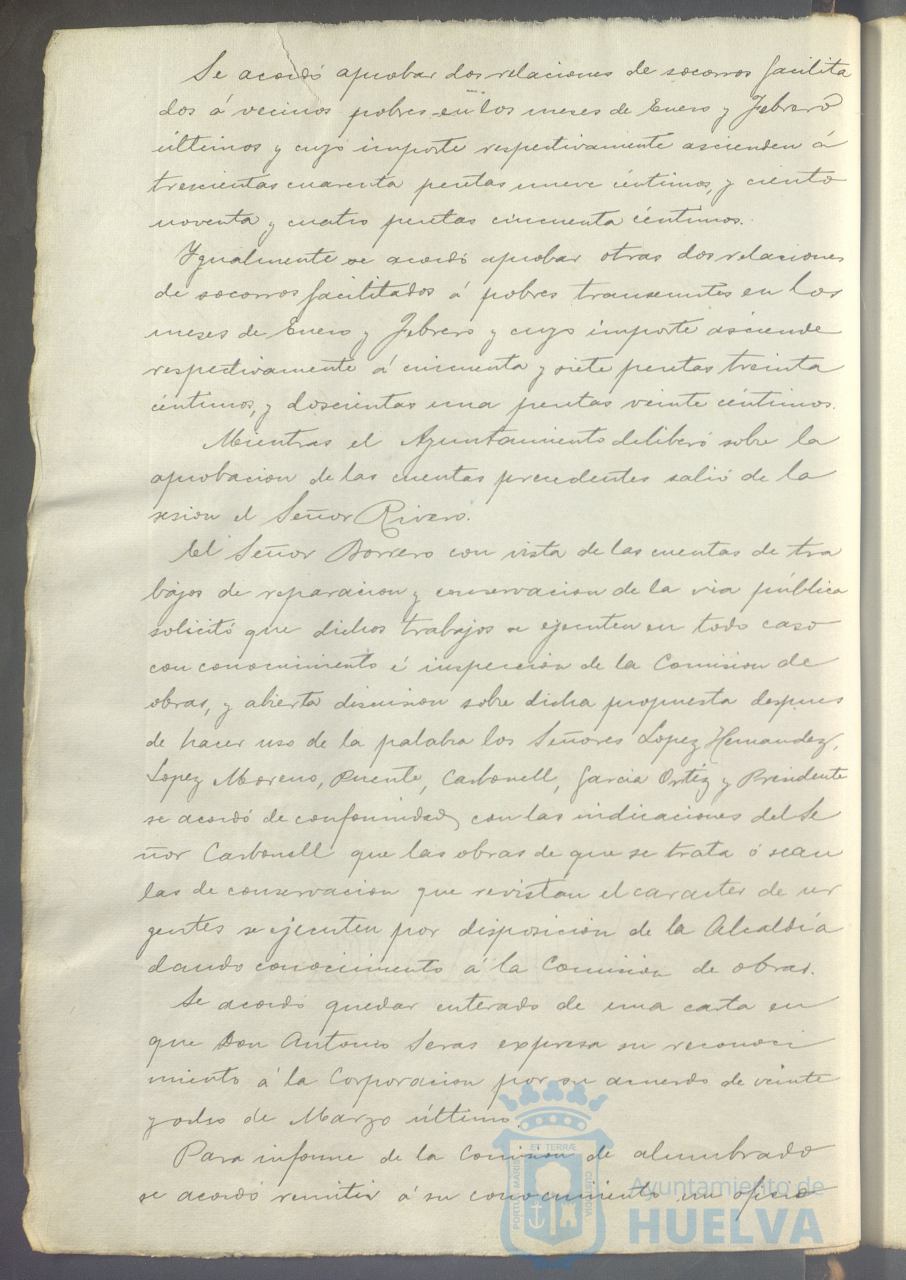 Se acordó aprobar dos relaciones de socorros facilita
dos á vecinos pobres en los meses de Enero y Febrero
últimos y cuyo importe respectivamente ascienden á
trescientas cuarenta pesetas nueve céntimos, y ciento
noventa y cuatro pesetas cincuenta céntimos.
Igualmente se acordó aprobar otras dos relaciones
de socorros facilitados á pobres transeuntes en los
meses de Enero y Febrero y cuyo importe asciende
respectivamente á cincuenta y siete pesetas treinta
céntimos, y doscientas una pesetas veinte céntimos.
Mientras el Ayuntamiento deliberó sobre la
aprobacion de las cuentas precedentes salió de la
sesion el Señor Rivero.
El Señor Borrero con vista de las cuentas de tra
bajos de reparacion y conservacion de la via pública
solicitó que dichos trabajos se ejecuten en todo caso
con conocimiento é inspeccion de la Comision de
obras, y abierta discusion sobre dicha propuesta despues
de hacer uso de la palabra los Señores Lopez Hernandez,
Lopez Moreno, Puente, Carbonell, Garcia Ortiz y Presidente
se acordó de conformidad con las indicaciones del Se
ñor Carbonell que las obras de que se trata ó sean
las de conservacion que revistan el caracter de ur
gentes se ejecuten por disposicion de la Alcaldía
dando conocimiento á la Comision de obras.
Se acordó quedar enterado de una carta en
que Don Antonio Seras expresa su reconoci
miento á la Corporacion por su acuerdo de veinte
y ocho de Marzo último.
Para informe de la Comision de alumbrado
se acordó remitir á su conocimiento un oficio
PORTUS MARIS ET TERRÆ CUSTODIA
Ayuntamiento de
HUELVA